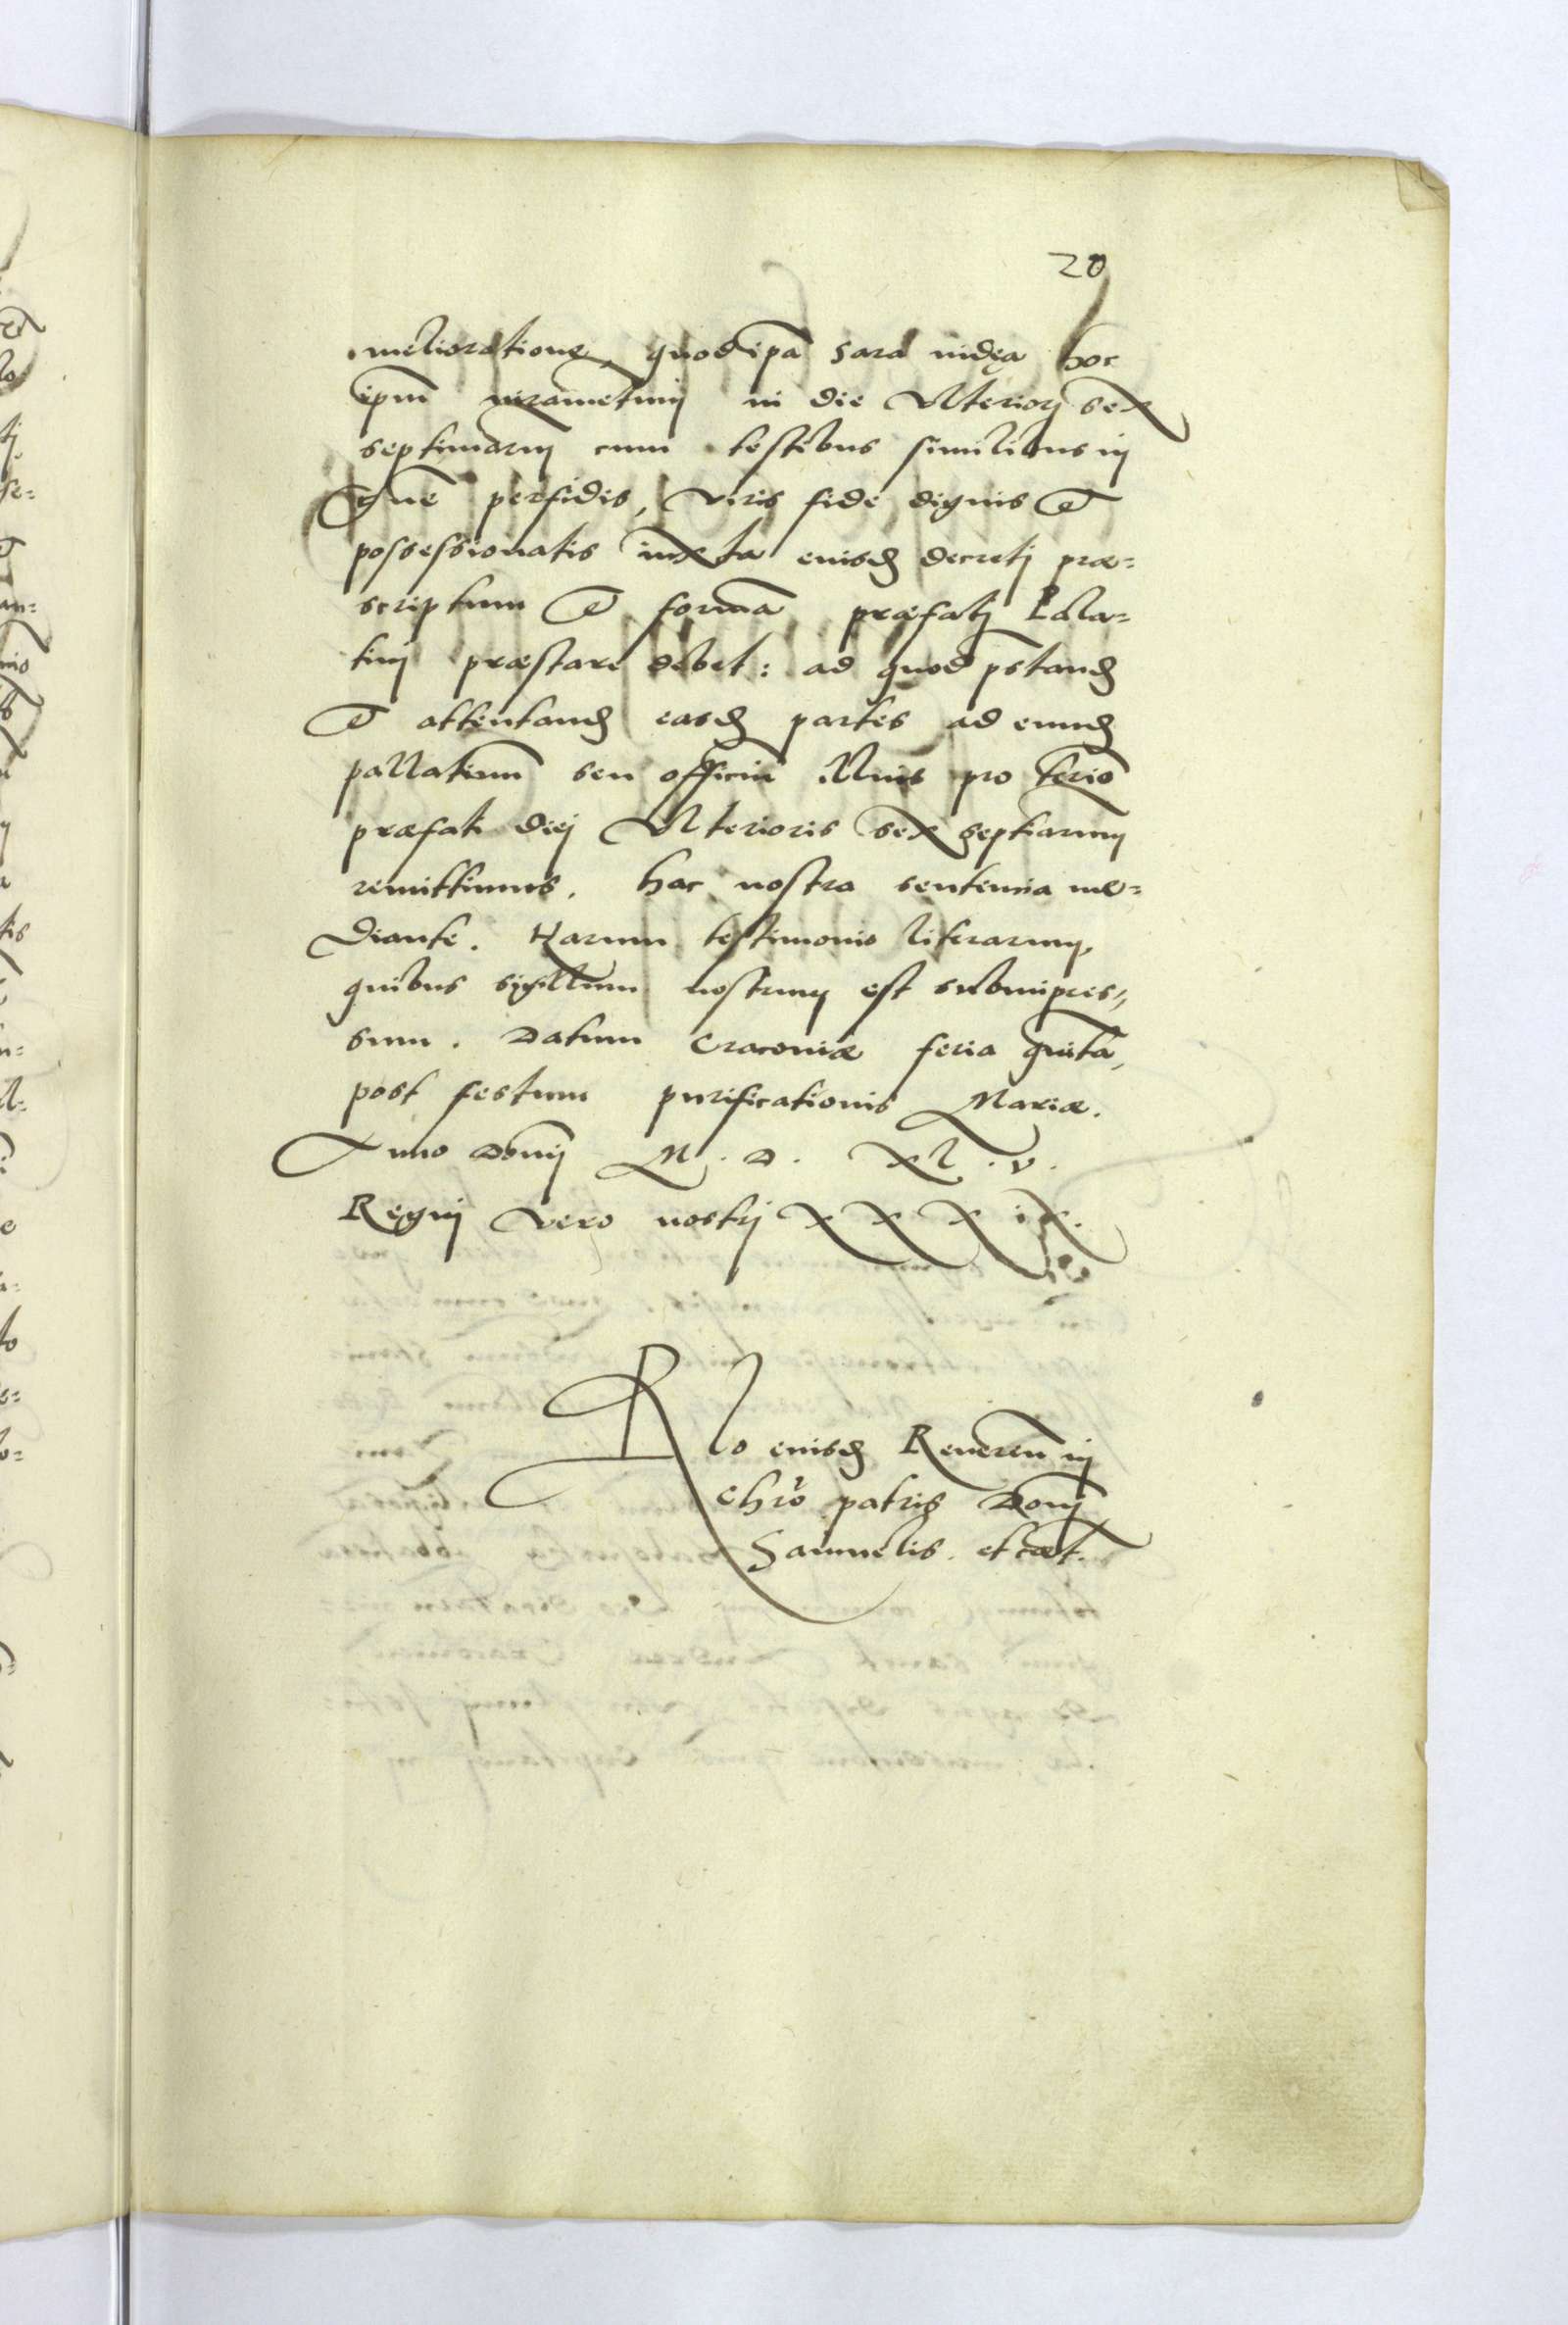 20
melioratione, quod ipa Sara iudęa hoc
ipm iuramētum in die Vlteriorj sex
septimarum cum testibus similibus in
perfidis, viris fide dignis et
possessionatis iuxta eiusd decretj præ=
scriptum et forma præfatj Pala=
tinj præstare debet: ad quod pstand
et attentand easd partes ad eund
pallatium seu officiū illius pro termio
præfati diej Vlterioris sex septiarum
remittimus. hac nostra sententia me=
diante. Harum testimonio literarum,
quibus sigillum nostrum est subimpres=
sum. Datum Cracoviæ feria quita,
post festum purificationis Mariæ.
Anno Domj M. D. XL. v.
Regnj vero nostrj XXXix.
Rlo eiusd Reueren in
Chro patris Domj
Samuelis. et cæt.